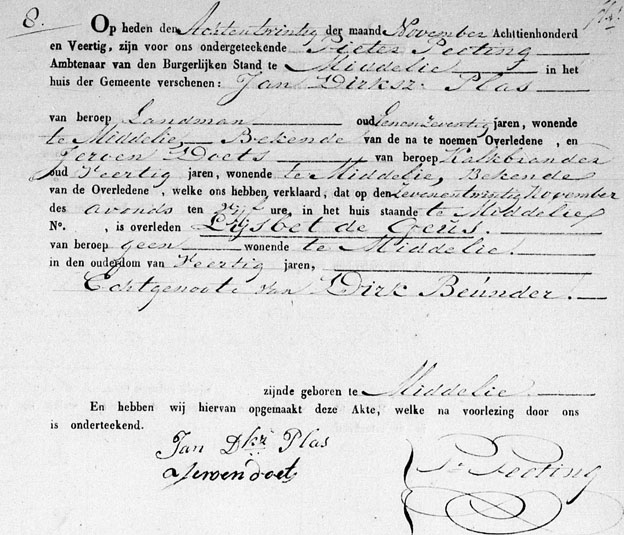 8. Op heden den Achtentwintig der maand November Achttienhonderd
en Veertig, zijn voor ons ondergeteekende Pieter Pooting
Ambtenaar van den Burgerlijken Stand te Middelie in het
huis der Gemeente verschenen: Jan Dirksz. Plas
van beroep Landman oud Eenenzeventig jaren, wonende
te Middelie Bekende van de na te noemen Overledene, en
Jeroen Doets van beroep Kalkbrander
oud Veertig jaren, wonende te Middelie, Bekende
van de Overledene, welke ons hebben verklaard, dat op den Zevenentwintig November
des avonds ten vijf ure, in het huis staande te Middelie
No. , is overleden Lijsbet de Geus.
van beroep geen wonende te Middelie.
in den ouderdom van Veertig jaren,
Echtgenoote van Dirk Beúnder.
zijnde geboren te Middelie.
En hebben wij hiervan opgemaakt deze Akte, welke na voorlezing door ons
is onderteekend.
Jan Dkz Plas
Jeroen doets
Pr Pooting